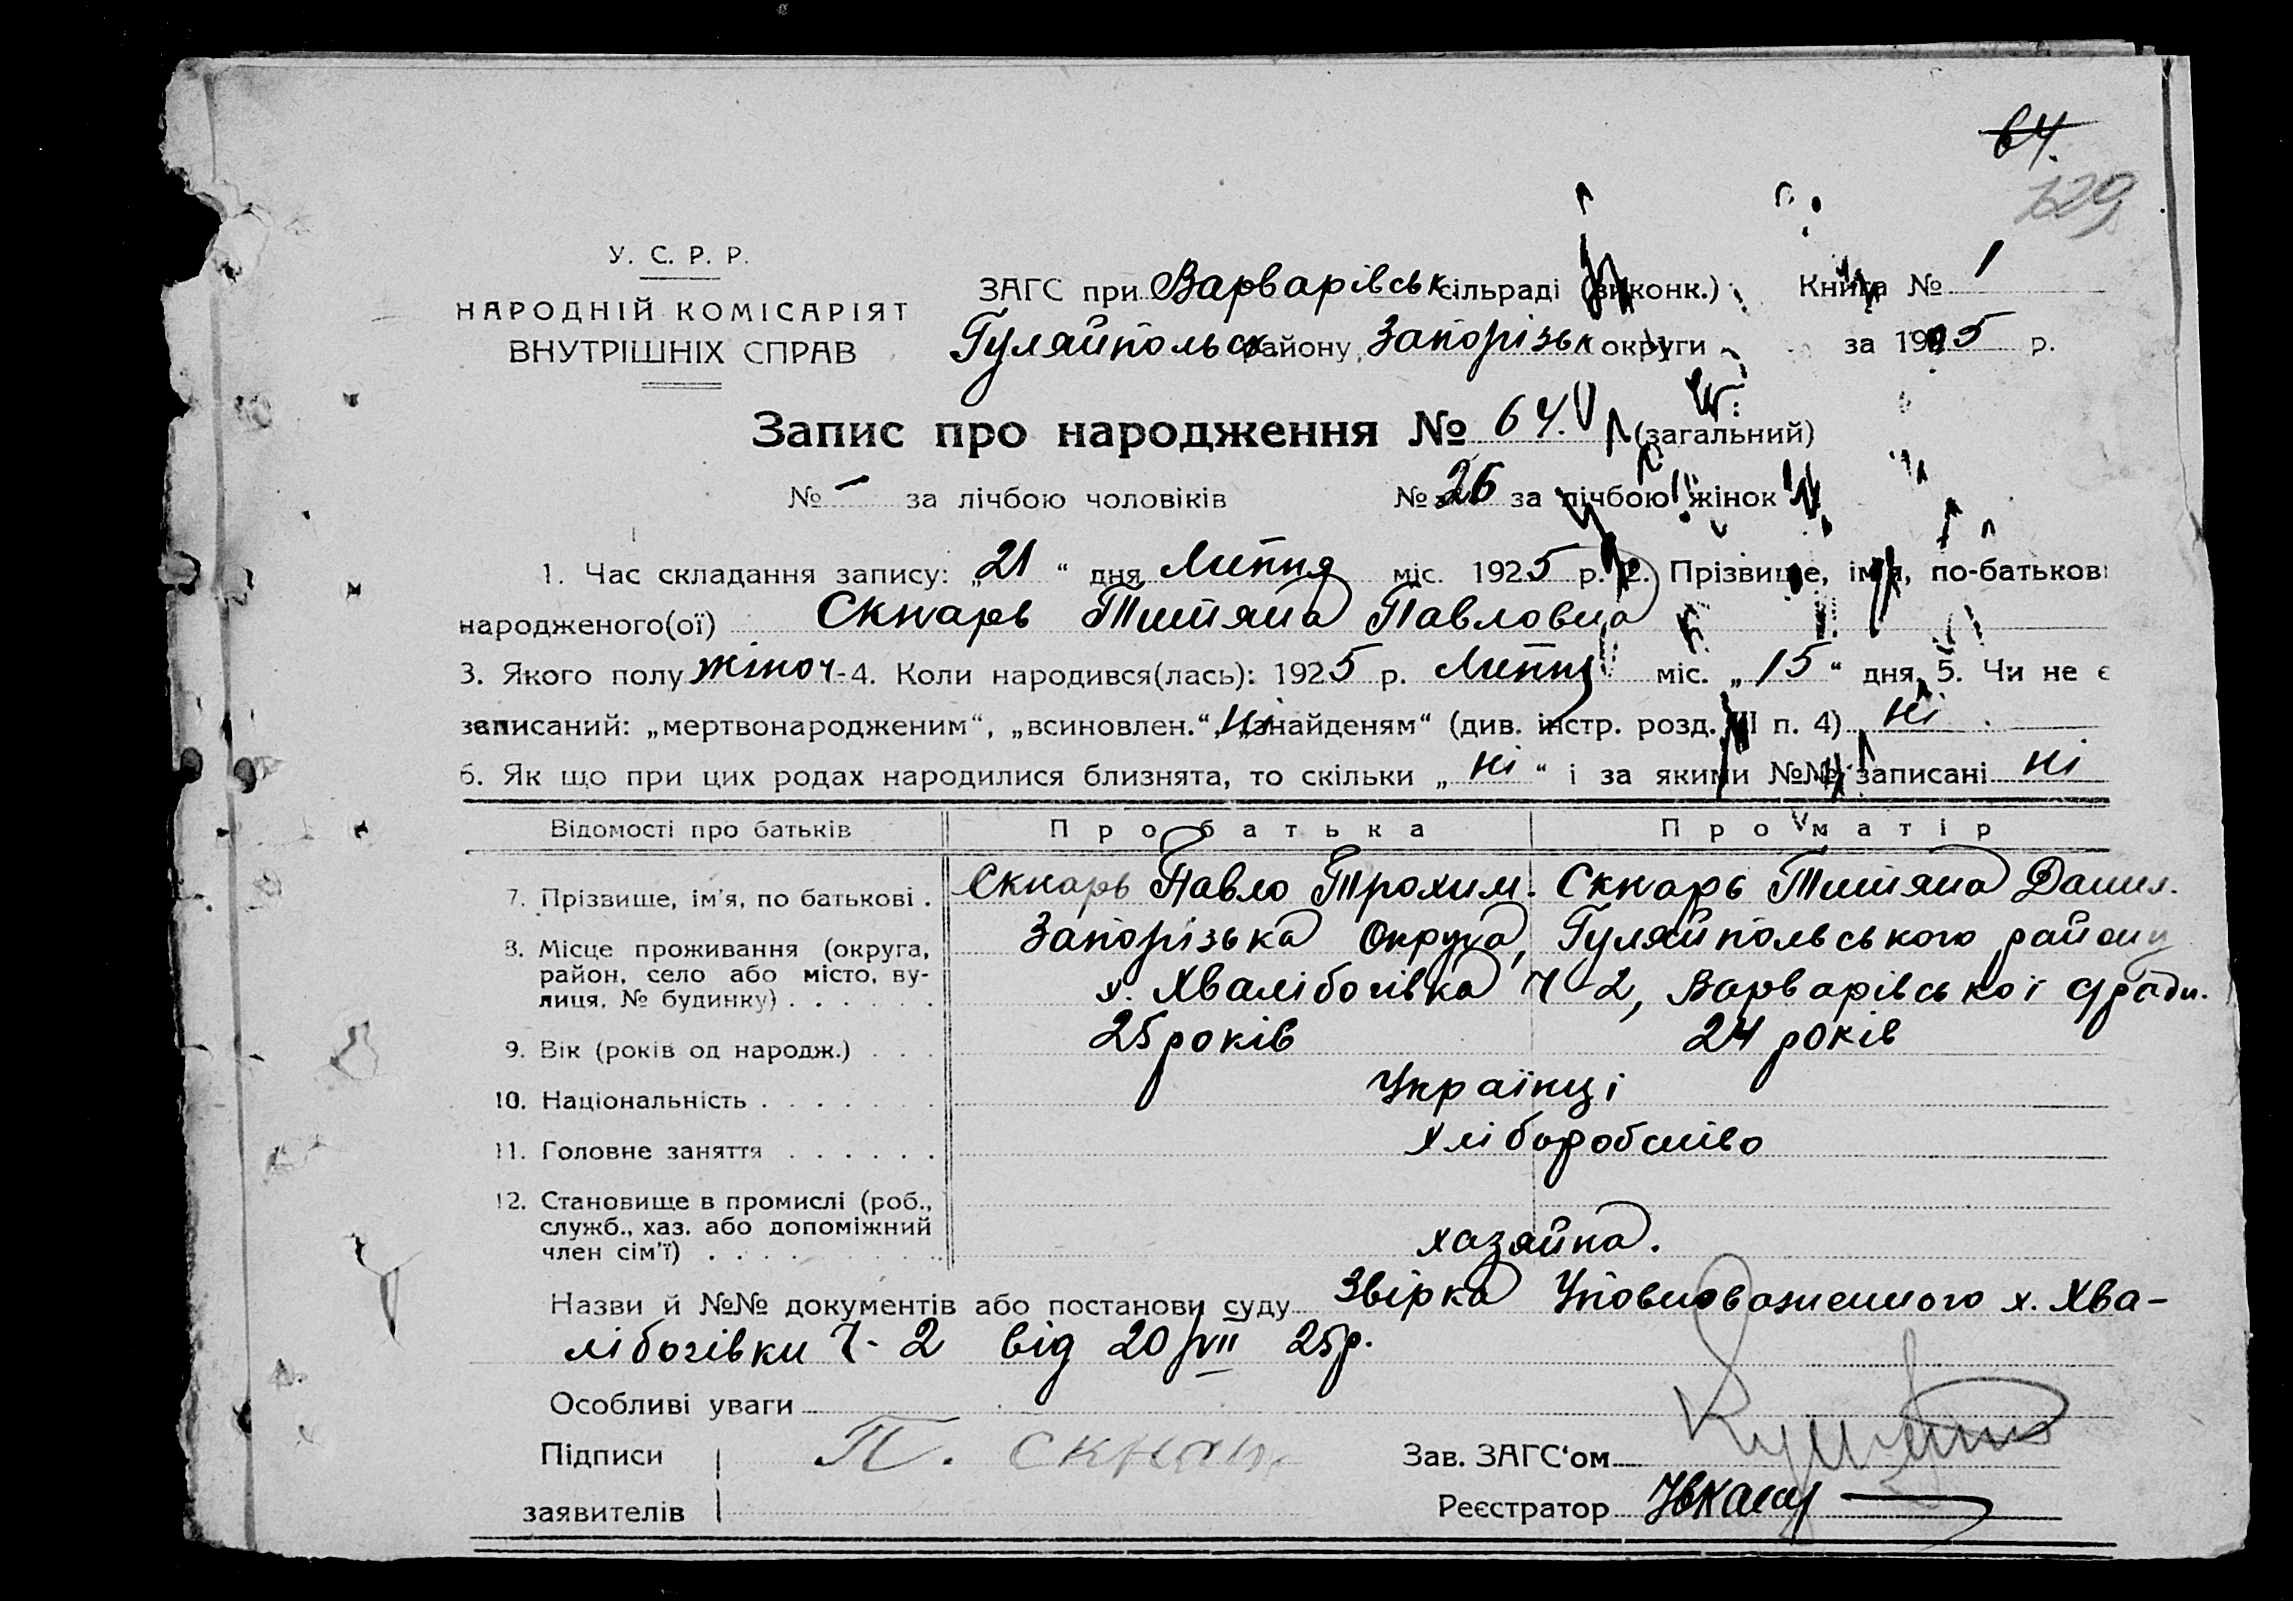 64.
129
У. С. Р. Р.
НАРОДНІЙ КОМІСАРІЯТ
ВНУТРІШНІХ СПРАВ
ЗАГС при Варварівськ сільраді (виконк.) Книга № 1
Гуляйпольськ району, Запорізьк округи за 1925 р.
Запис про народження № 64. (загальний)
№ – за лічбою чоловіків № 26 за лічбою жінок
1. Час складання запису: „21“ дня Липня міс. 1925 р. 2. Прізвище, ім'я, по-батькові
народженого(ої) Скнарь Титяна Павловна
3. Якого полу жіноч. 4. Коли народився(лась): 1925 р. Липня міс. „15“ дня. 5. Чи не є
записаний: „мертвонародженим“, „всиновлен.“, „знайденям“ (див. інстр. розд. III п. 4) ні
6. Як що при цих родах народилися близнята, то скільки „ні“ і за якими №№ записані ні
Відомості про батьків Про батька Про матір
7. Прізвище, ім'я, по батькові . Скнарь Павло Трохим. Скнарь Титяна Данил.
8. Місце проживання (округа, Запорізька Округа, Гуляйпольського району
район, село або місто, ву-
лиця, № будинку) . . . . . . х. Хвалібогівка Ч 2, Варварівської с/ради.
9. Вік (років од народж.) . . . 25 років 24 років
10. Національність . . . . . . . Українці
11. Головне заняття . . . . . . хліборобство
12. Становище в промислі (роб.,
служб., хаз. або допоміжний
член сім'ї) . . . . . . хазяйка.
Назви й №№ документів або постанови суду Звірка Уповноваженного х. Хва-
лібогівки Ч- 2 від 20/VII 25р.
Особливі уваги
Підписи П. Скнарь Зав. ЗАГС‘ом
заявителів Реєстратор